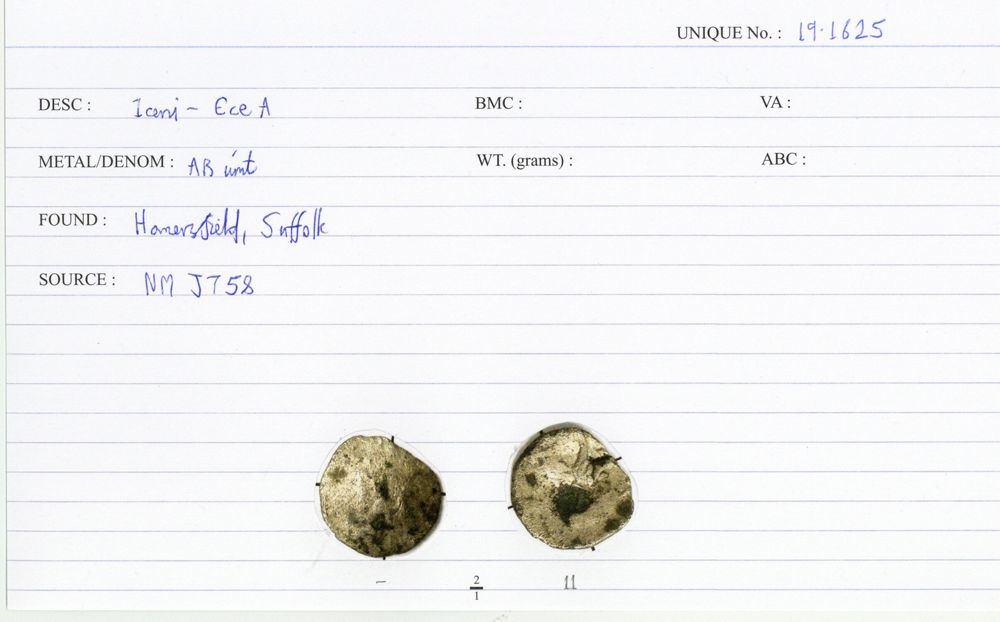 UNIQUE No. : 19.1625
DESC : Iceni - Ece A BMC : VA :
METAL/DENOM : AR unit WT. (grams) : ABC :
FOUND : Homersfield, Suffolk
SOURCE : NM J758
- 2/1 11